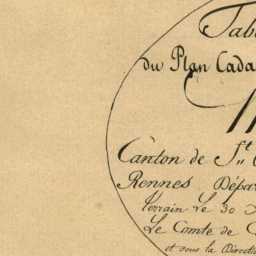 Tabl
du Plan Cada
Canton de S.t
Rennes Dépar
terrain Le 30
Le Comte de
et sous la Directi